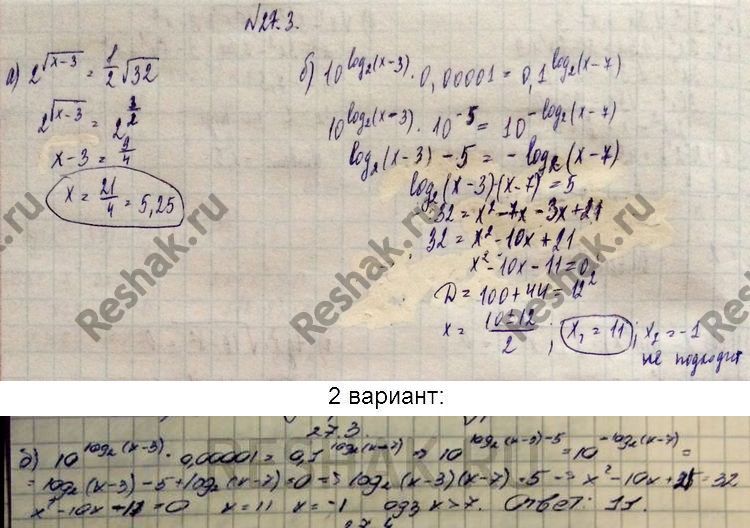 №27.3.
а) 2^√(x-3) = 1/2 √32
2^√(x-3) = 2^(3/2)
x-3 = 9/4
x = 21/4 = 5,25
б) 10^(log₂(x-3)) · 0,00001 = 0,1^(log₂(x-7))
10^(log₂(x-3)) · 10^(-5) = 10^(-log₂(x-7))
log₂(x-3) - 5 = - log₂(x-7)
log₂(x-3)(x-7) = 5
32 = x² - 7x - 3x + 21
32 = x² - 10x + 21
x² - 10x - 11 = 0
D = 100 + 44 = 12²
x = (10 ± 12)/2 ; x₁ = 11 ; x₂ = -1
не подходит
Reshak.ru
Reshak.ru
Reshak.ru
2 вариант:
27.3.
б) 10^(log₂(x-3)) · 0,00001 = 0,1^(log₂(x-7)) ⇒ 10^(log₂(x-3)-5) = 10^(-log₂(x-7)) =
= log₂(x-3) - 5 + log₂(x-7) = 0 ⇒ log₂(x-3)(x-7) = 5 ⇒ x² - 10x + 21 = 32
x² - 10x - 11 = 0 x = 11 x = -1 ОДЗ x > 7. Ответ: 11.
RESHAK.RU